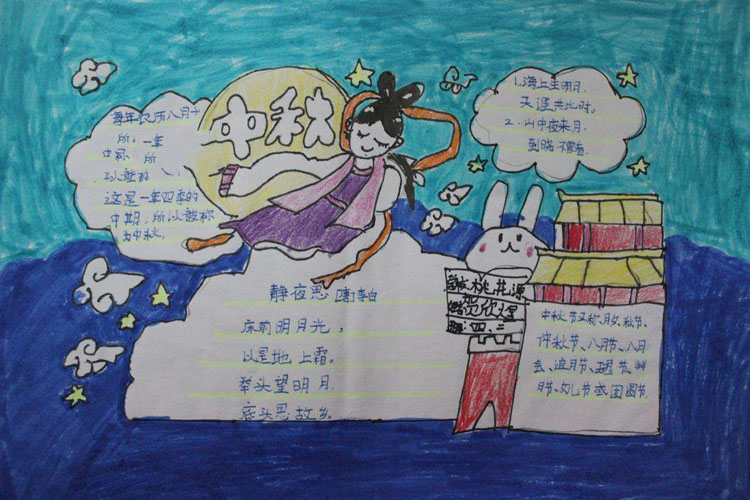 中秋
每年农历八月十
所, 一年
中 所
以
这是一年四季的
中期,所以被称
为中秋.
1.海上生明月,
天涯共此时.
2.山中夜来月,
到晓不曾看.
静夜思 [唐]李白
床前明月光,
以是地上霜.
举头望明月.
底头思故乡.
桃 源
欣
四、二
中秋节又称、月夕、秋节、
仲秋节、八月节、八月
会、追月节、玩月节、拜
月节、女儿节或团圆节.